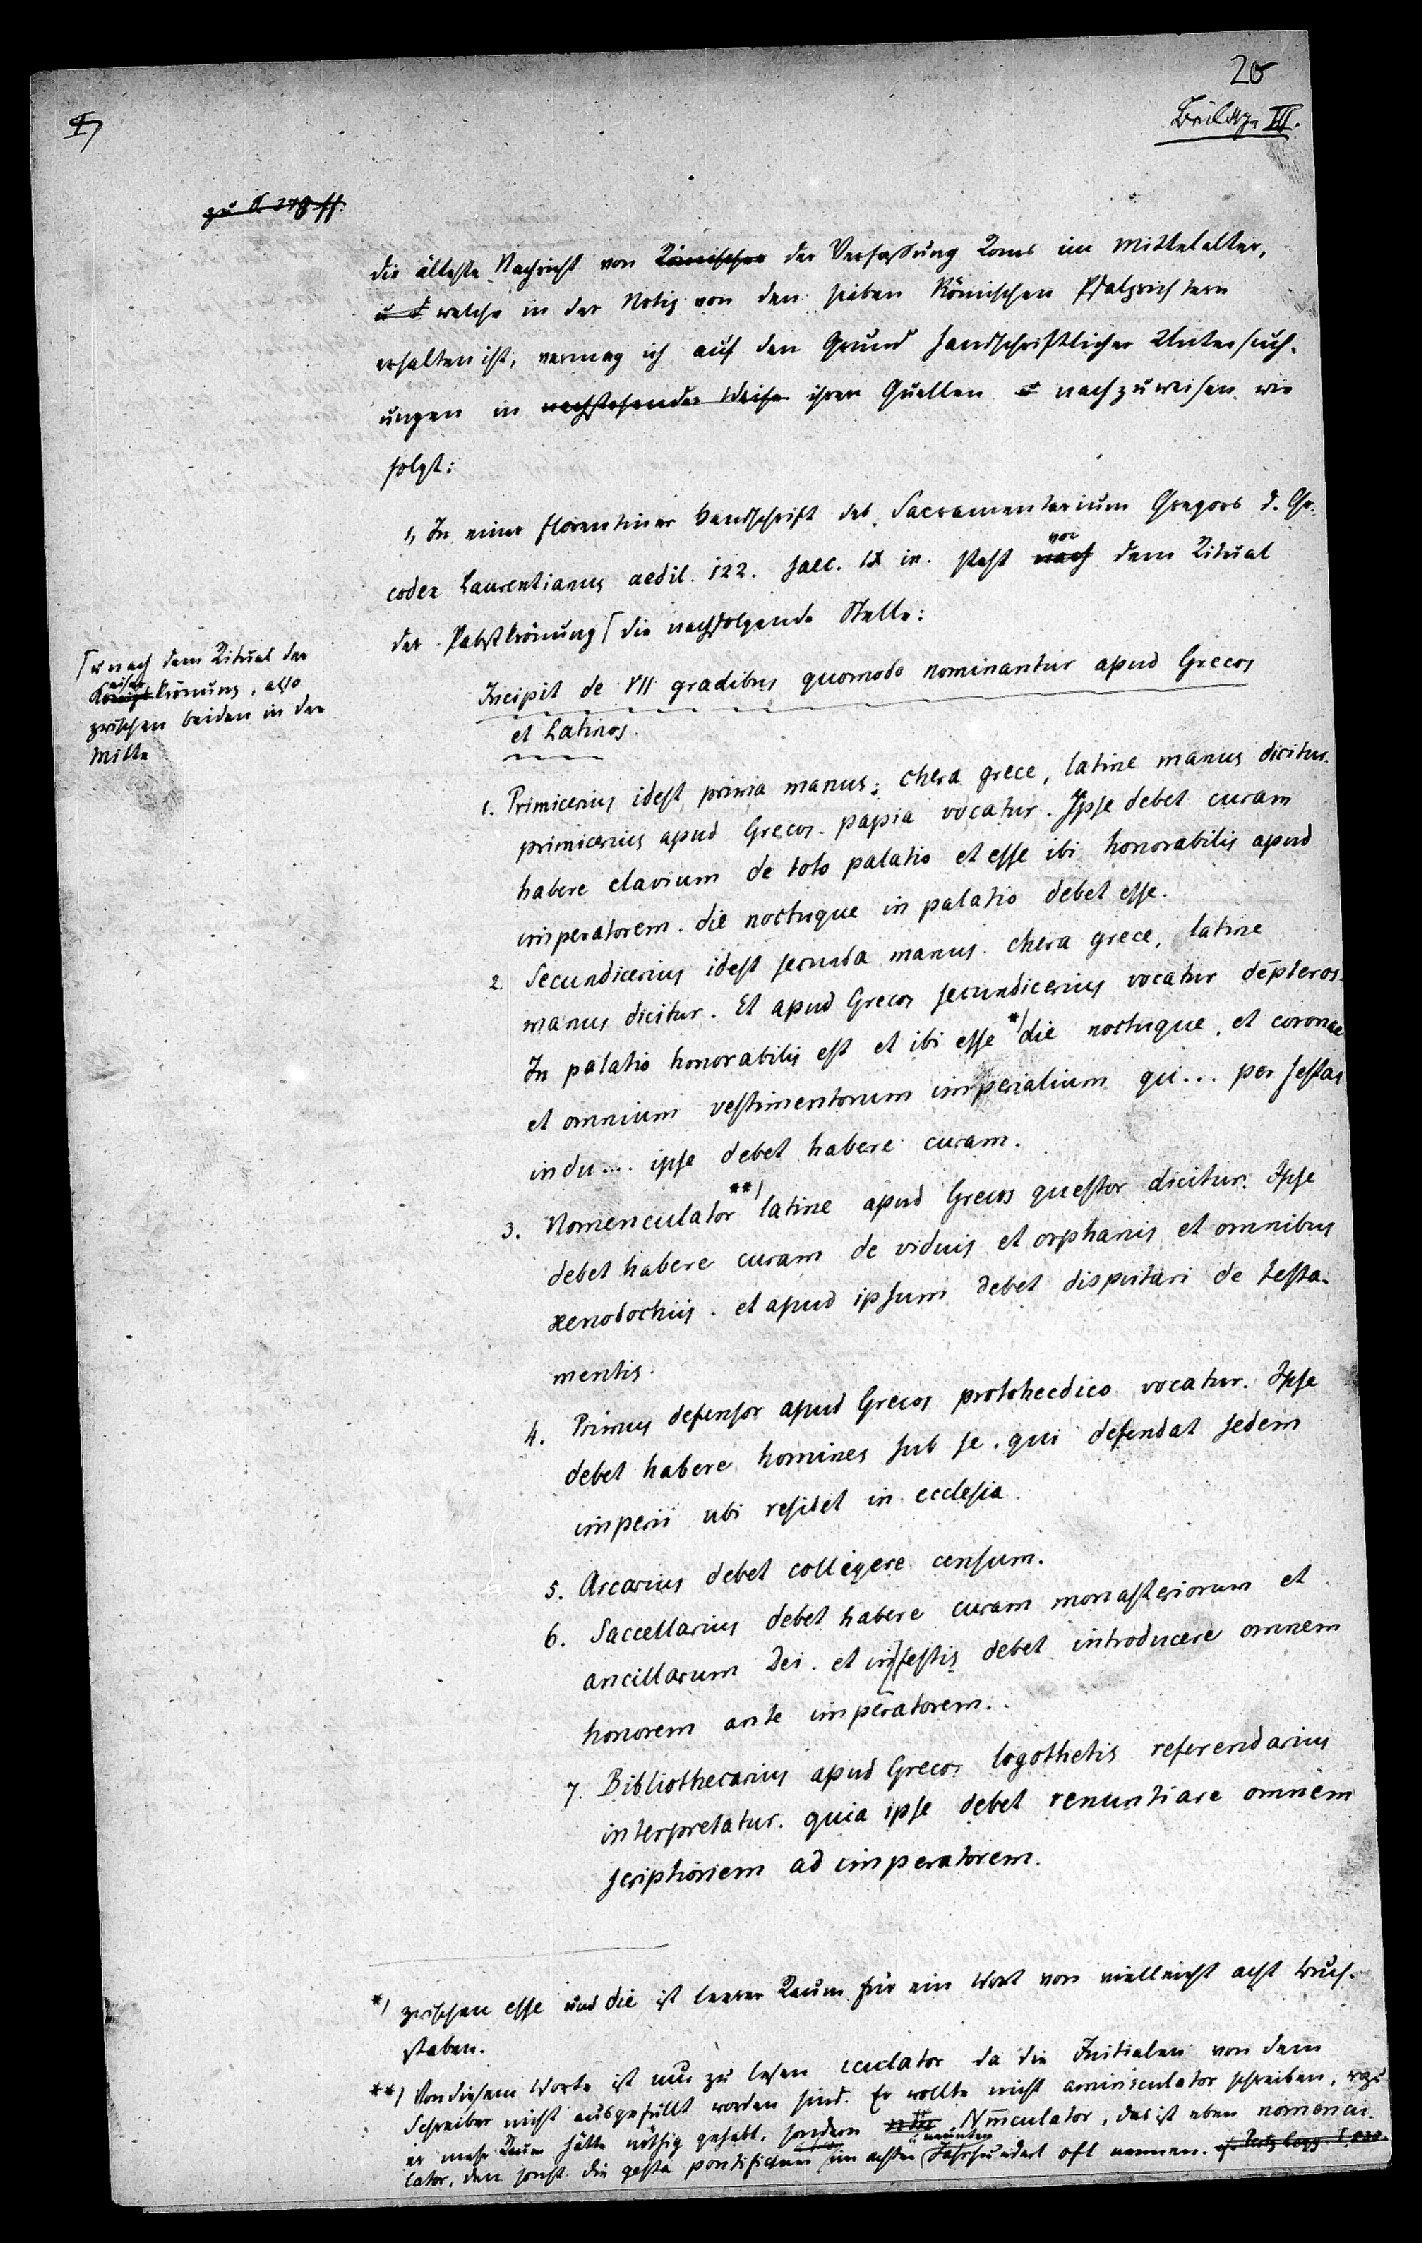 20
Beilage III.
I)
zu S. 278 ff.
die älteste Nachricht von Römischen der Verfaßung Roms im Mittelalter,
u d welche in der Notiz von den sieben Römischen Pfalzrichtern
erhalten ist, vermag ich auf den Grund handschriftlicher Untersuch-
ungen in nachstehender Weise ihren Quellen nachzuweisen wie
folgt:
1, In einer florentiner Handschrift des Sacramentarium Gregors d. Gr.
codex Laurentianus aedil. 122. saec. IX in. steht nach vor dem Ritual
der Pabstkrönung ⌈ die nachfolgende Stelle:
⌈ u nach dem Ritual der
Königs Kaiserkrönung, also
zwischen beiden in der
Mitte
Incipit de VII gradibus quomodo nominantur apud Grecos
et Latinos.
1. Primicerius idest prima manus; chera grece, latine manus dicitur.
primicerius apud Grecos. papia vocatur. Ipse debet curam
habere clavium de toto palatio et esse ibi honorabilis apud
imperatorem. die noctuque in palatio debet esse.
2. Secundicerius idest secunda manus. chera grece, latine
manus dicitur. Et apud Grecos secundicerius vocatur depteros.
In palatio honorabilis est et ibi esse *) die noctuque, et coronae
et omnium vestimentorum imperialium qui... per festas
indu.... ipse debet habere curam.
3. Nomenculator **) latine apud Grecos questor dicitur. Ipse
debet habere curam de viduis et orphanis et omnibus
xenodochiis. et apud ipsum debet disputari de testa-
mentis.
4. Primus defensor apud Grecos protohecdico vocatur. Ipse
debet habere homines sub se. qui defendat sedem
imperii ubi residet in ecclesia.
5. Arcarius debet colligere censum.
6. Saccellarius debet habere curam monasteriorum et
ancillarum Dei. et in festis debet introducere omnem
honorem ante imperatorem.
7. Bibliothecarius apud Grecos logothetis referendarius
interpretatur. quia ipse debet renuntiare omnem
scriptionem ad imperatorem.
*) zwischen esse und die ist leerer Raum für ein Wort von vielleicht acht Buch-
staben.
**) Von diesem Worte ist nur zu lesen culator da die Initialen von dem
Schreiber nicht ausgefüllt worden sind. Er wollte nicht aminisculator schreiben, wozu
er mehr Raum hätte nöthig gehabt, sondern Nmculator, das ist eben nomencu-
lator, den sonst die gesta pontificum im achten u neunten Jahrhundert oft nennen.